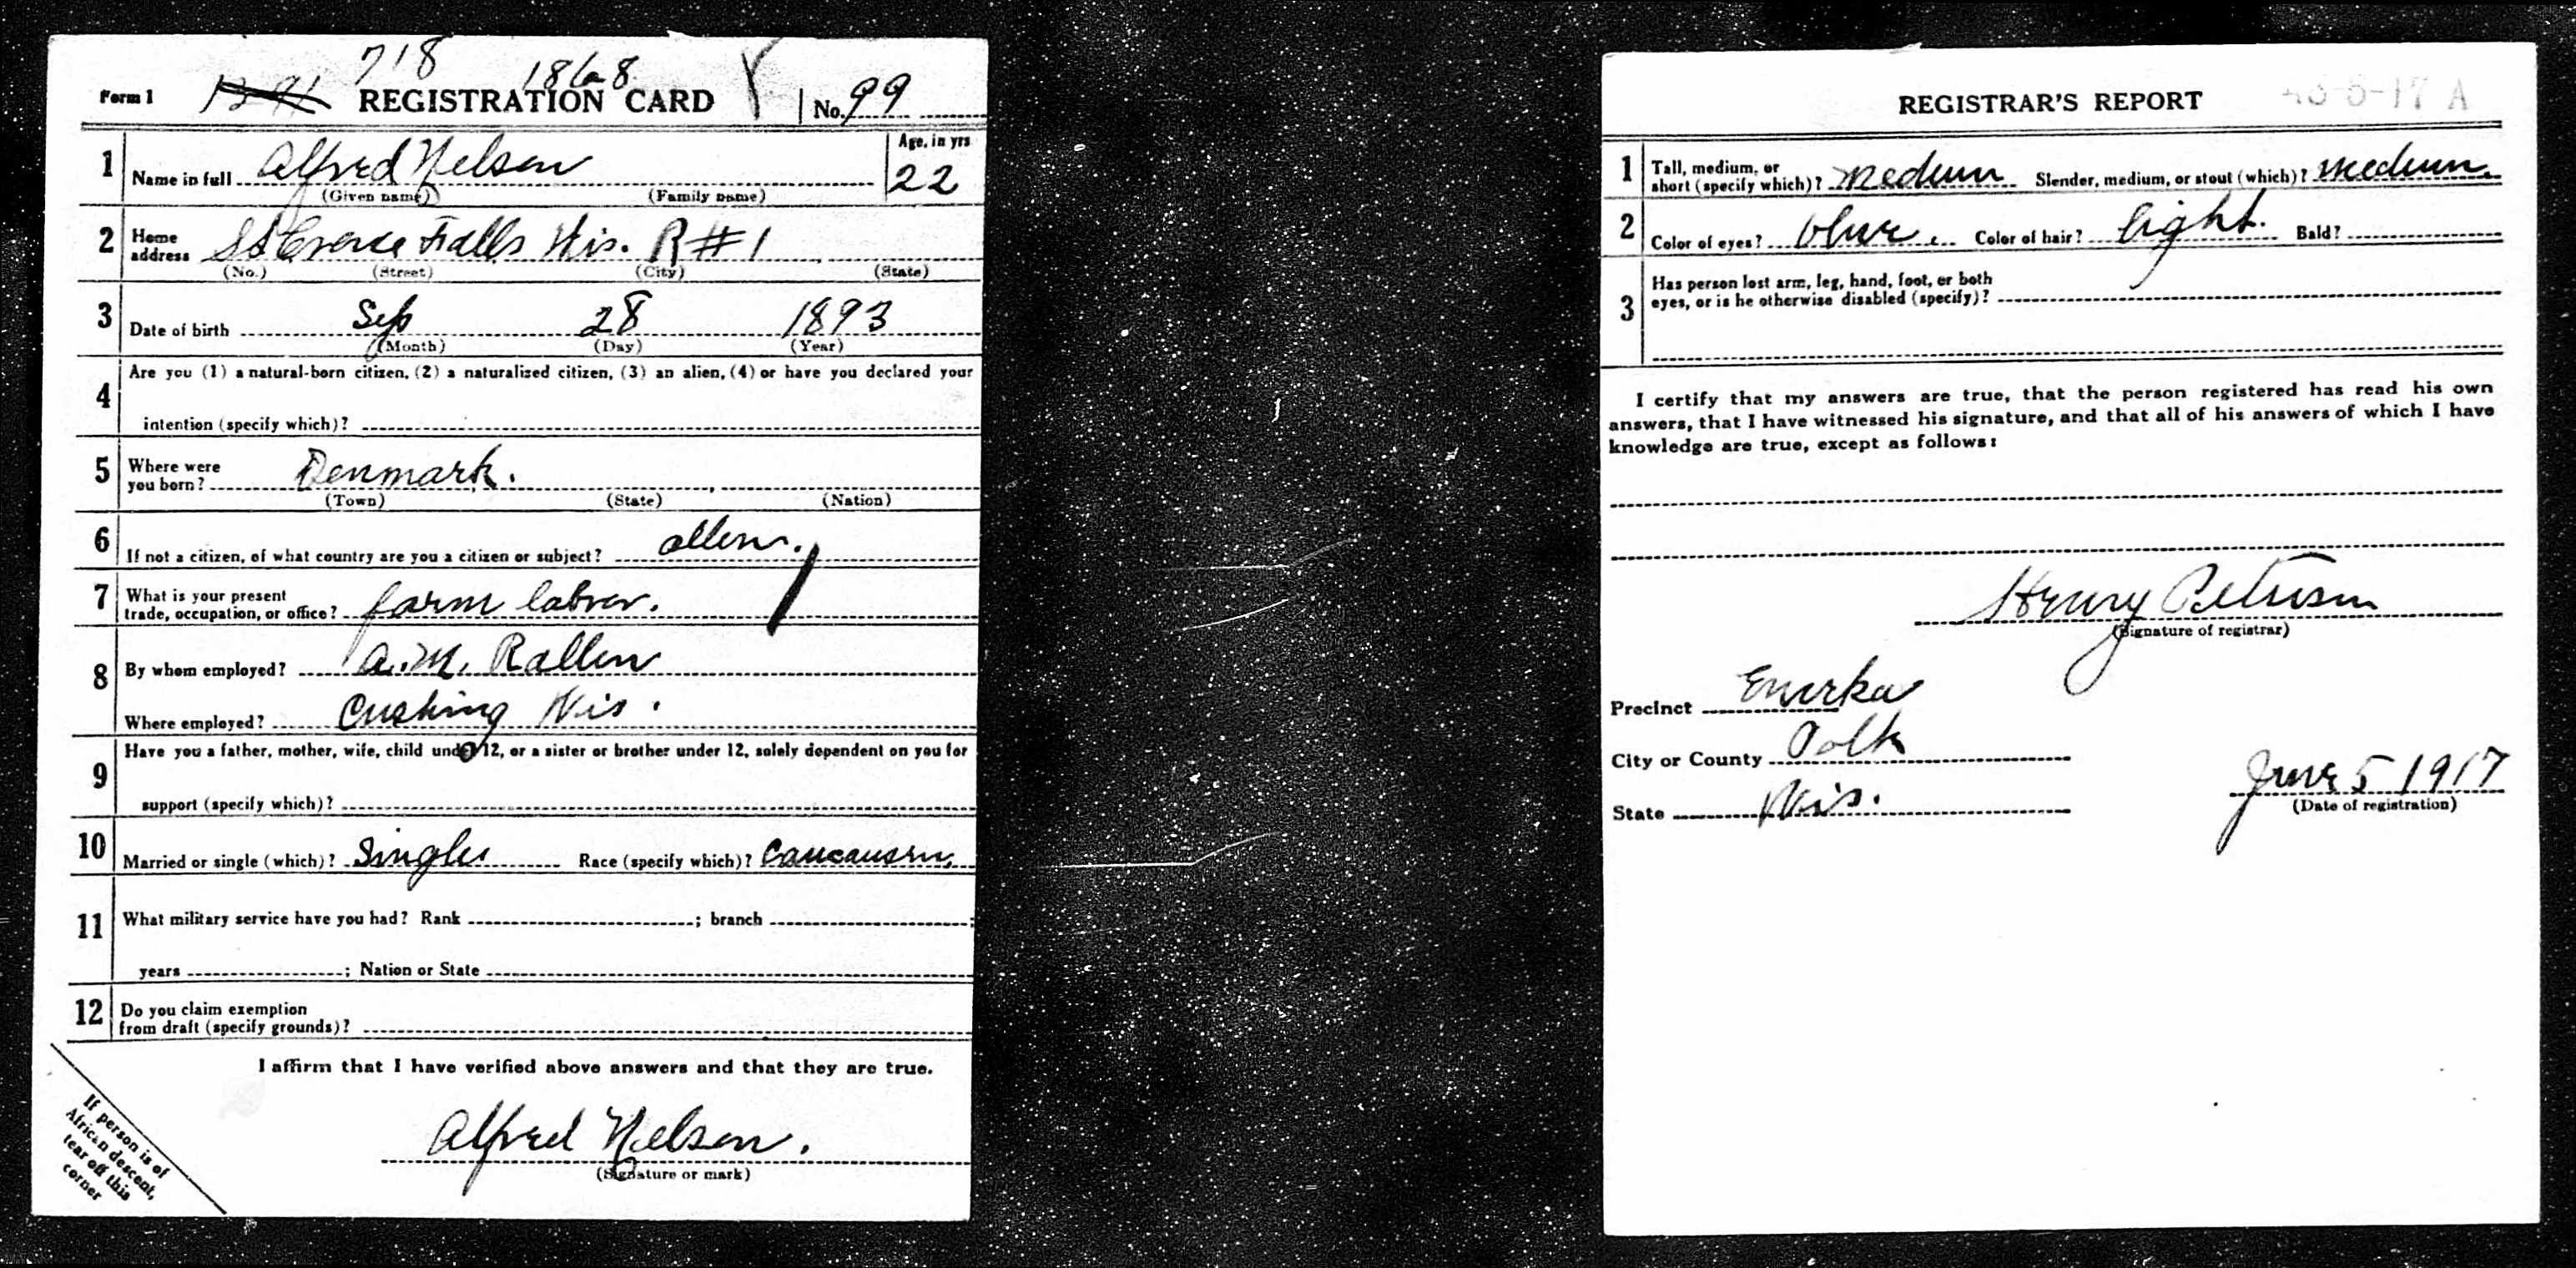 718
1868
Form 1 1291 REGISTRATION CARD No. 99
1 Name in full Alfred Nelson Age, in yrs 22
(Given name) (Family name)
2 Home address St Croix Falls Wis. R#1
(No.) (Street) (City) (State)
3 Date of birth Sep 28 1893
(Month) (Day) (Year)
4 Are you (1) a natural-born citizen, (2) a naturalized citizen, (3) an alien, (4) or have you declared your
intention (specify which)?
5 Where were you born? Denmark.
(Town) (State) (Nation)
6 If not a citizen, of what country are you a citizen or subject?
7 What is your present
trade, occupation, or office? farm labrer.
8 By whom employed? A.M. Rallen
Where employed? Cushing Wis.
9 Have you a father, mother, wife, child under 12, or a sister or brother under 12, solely dependent on you for
support (specify which)?
10 Married or single (which)? Single Race (specify which)?
11 What military service have you had? Rank ; branch ;
years ; Nation or State
12 Do you claim exemption
from draft (specify grounds)?
I affirm that I have verified above answers and that they are true.
Alfred Nelson.
(Signature or mark)
If person is of
African descent,
tear off this
corner
REGISTRAR'S REPORT
1 Tall, medium, or
short (specify which)? Medium Slender, medium, or stout (which)? Medium
2 Color of eyes? blue. Color of hair? light. Bald?
3 Has person lost arm, leg, hand, foot, or both
eyes, or is he otherwise disabled (specify)?
I certify that my answers are true, that the person registered has read his own
answers, that I have witnessed his signature, and that all of his answers of which I have
knowledge are true, except as follows:
Henry Peterson
(Signature of registrar)
Precinct Eureka
City or County Polk
State Wis.
June 5 1917
(Date of registration)